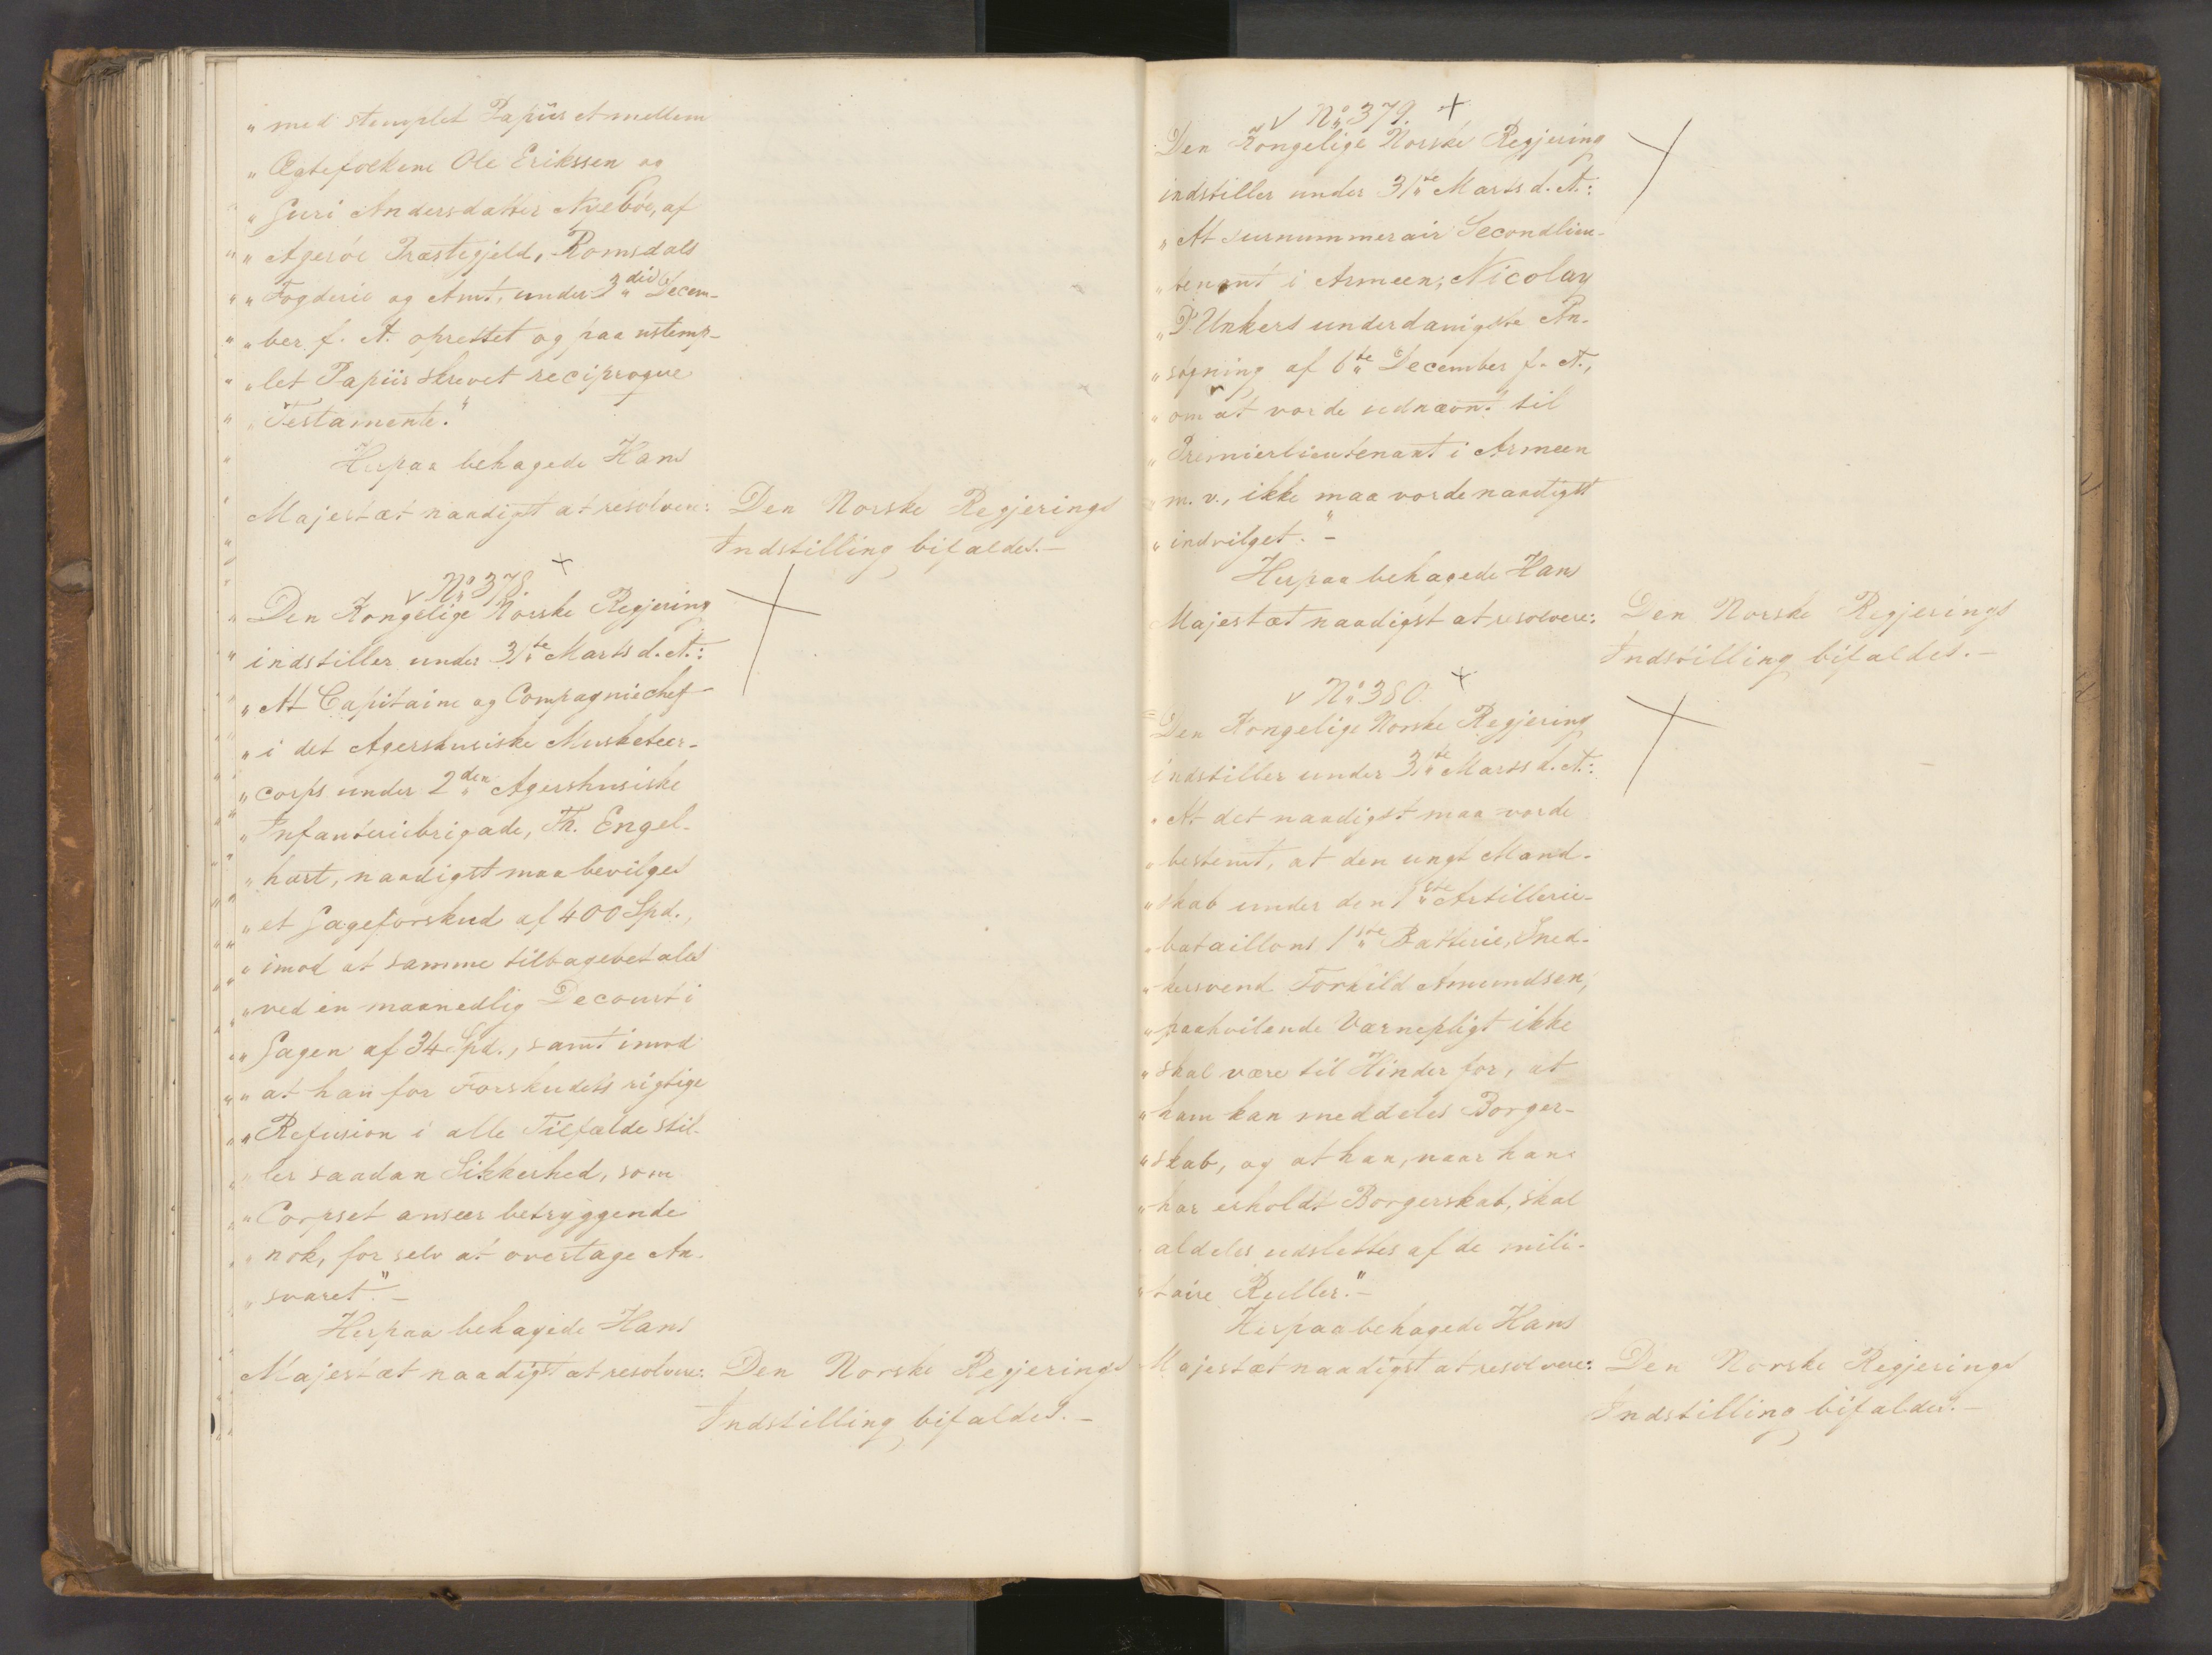 „med stemplet Papiir Amellem
„Ægtefolkene Ole Erikssen og
„Guri Andersdatter Nyebøe, af
„Agerøe Præstegjeld, Romsdals
„Fogderie og Amt, under 3die Decem-
„ber f. A. oprettet og paa ustemp-
„let Papiir skrevet reciproque
„Testamente."
Herpaa behagede Hans
Majestæt naadigst at resolvere:
Den Norske Regjerings
Indstilling bifaldes.—
No 378.
Den Kongelige Norske Regjering
indstiller under 31te Marts d. A.:
„At Capitaine og Compagniechef
„i det Agershusiske Musketeer-
„corps under 2den Agershusiske
„Infanteriebrigade, Th. Engel-
„hart, naadigst maa bevilges
„et Gageforskud af 400 Spd.,
„imod at samme tilbagebetales
„ved en maanedlig Decourt i
„Gagen af 34 Spd., samt imod
„at han for Forskudets rigtige
„Refusion i alle Tilfælde stil-
„ler saadan Sikkerhed, som
„Corpset anseer betryggende
„nok, for selv at overtage An-
„svaret."—
Herpaa behagede Hans
Majestæt naadigst at resolvere:
Den Norske Regjerings
Indstilling bifaldes.—
No 379.
Den Kongelige Norske Regjering
indstiller under 31te Marts d. A.:
„At surnummerair Secondlieu-
„tenant i Armeen, Nicolay
„P. Unkers underdanigste An-
„søgning af 6te December f. A.,
„om at vorde udnævnt til
„Premierlieutenant i Armeen
„m. v., ikke maa vorde naadigst
„indvilget."—
Herpaa behagede Hans
Majestæt naadigst at resolvere:
Den Norske Regjerings
Indstilling bifaldes.—
No 380.
Den Kongelige Norske Regjering
indstiller under 31te Marts d. A.:
„At det naadigst maa vorde
„bestemt, at den ungt Mand-
„skab under den 1ste Artillerie-
„bataillons 1ste Batterie, Sned-
„kersvend Torkild Amundsen,
„paahvilende Værnepligt ikke
„skal være til Hinder for, at
„ham kan meddeles Borger-
„skab, og at han, naar han
„har erholdt Borgerskab, skal
aldeles udslettes af de mili-
„taire Ruller."—
Herpaa behagede Hans
Majestæt naadigst at resolvere:
Den Norske Regjerings
Indstilling bifaldes.—